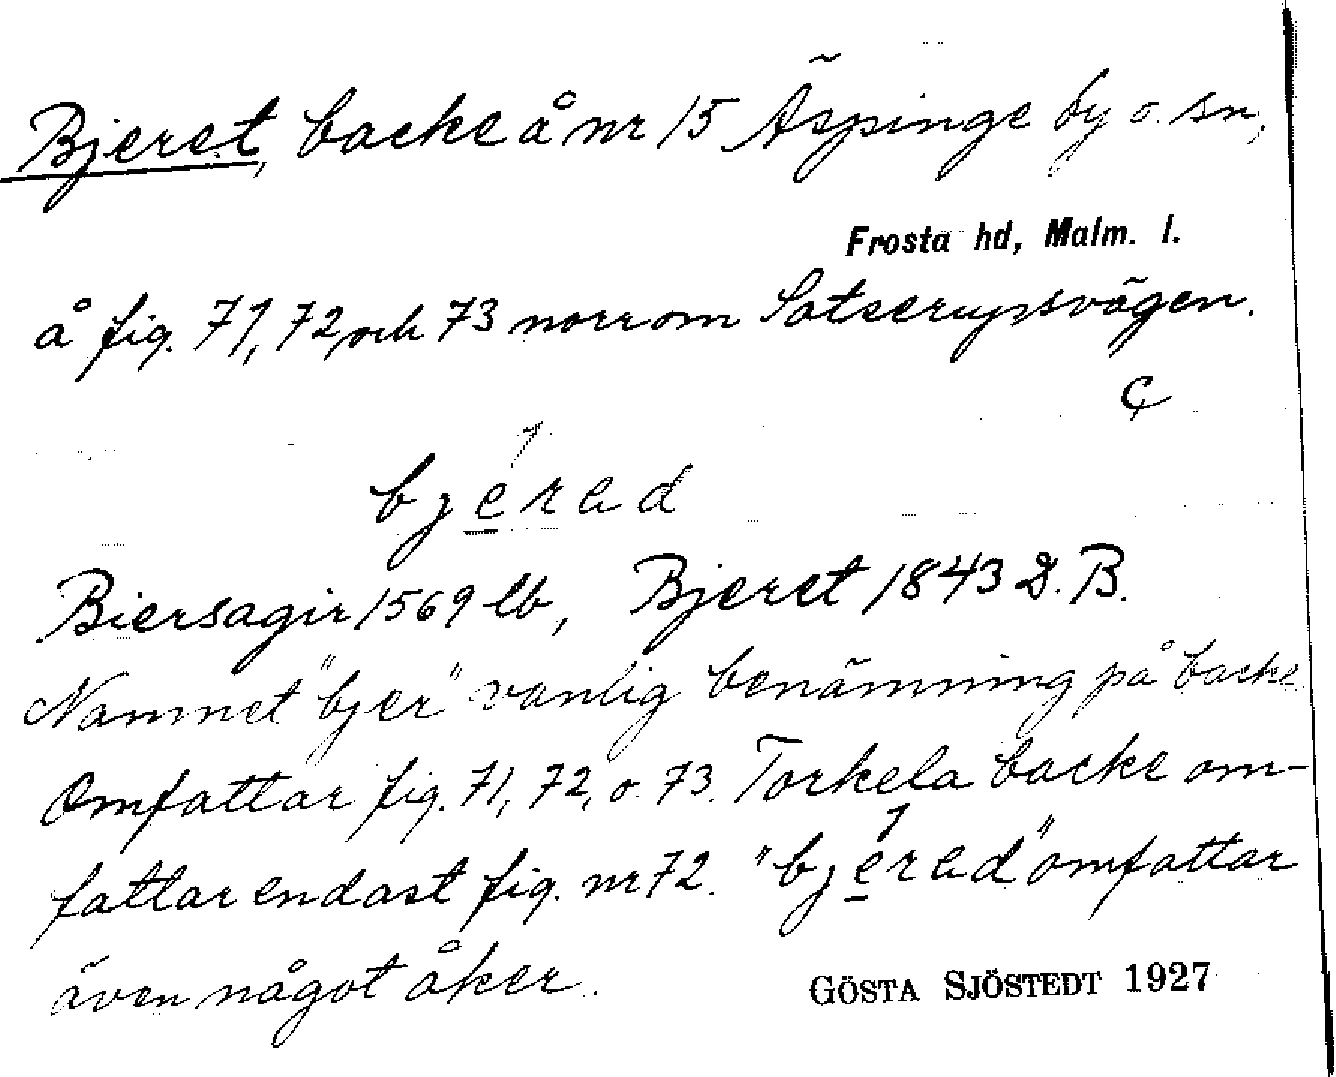 Bjeret, backe å nr 15 Äspinge by o. sn,
Frosta hd, Malm. l.
å fig. 71, 72, och 73 norrom Satserupsvägen.
bjerad
Biersagir 1569 lb, Bjeret 1843 D.B.
Namnet "bjer" vanlig benämning på backe
Omfattar fig. 71, 72, o. 73. Torkela backe om-
fattar endast fig. nr 72. "bjerad" omfattar
även något åker.
GÖSTA SJÖSTEDT 1927